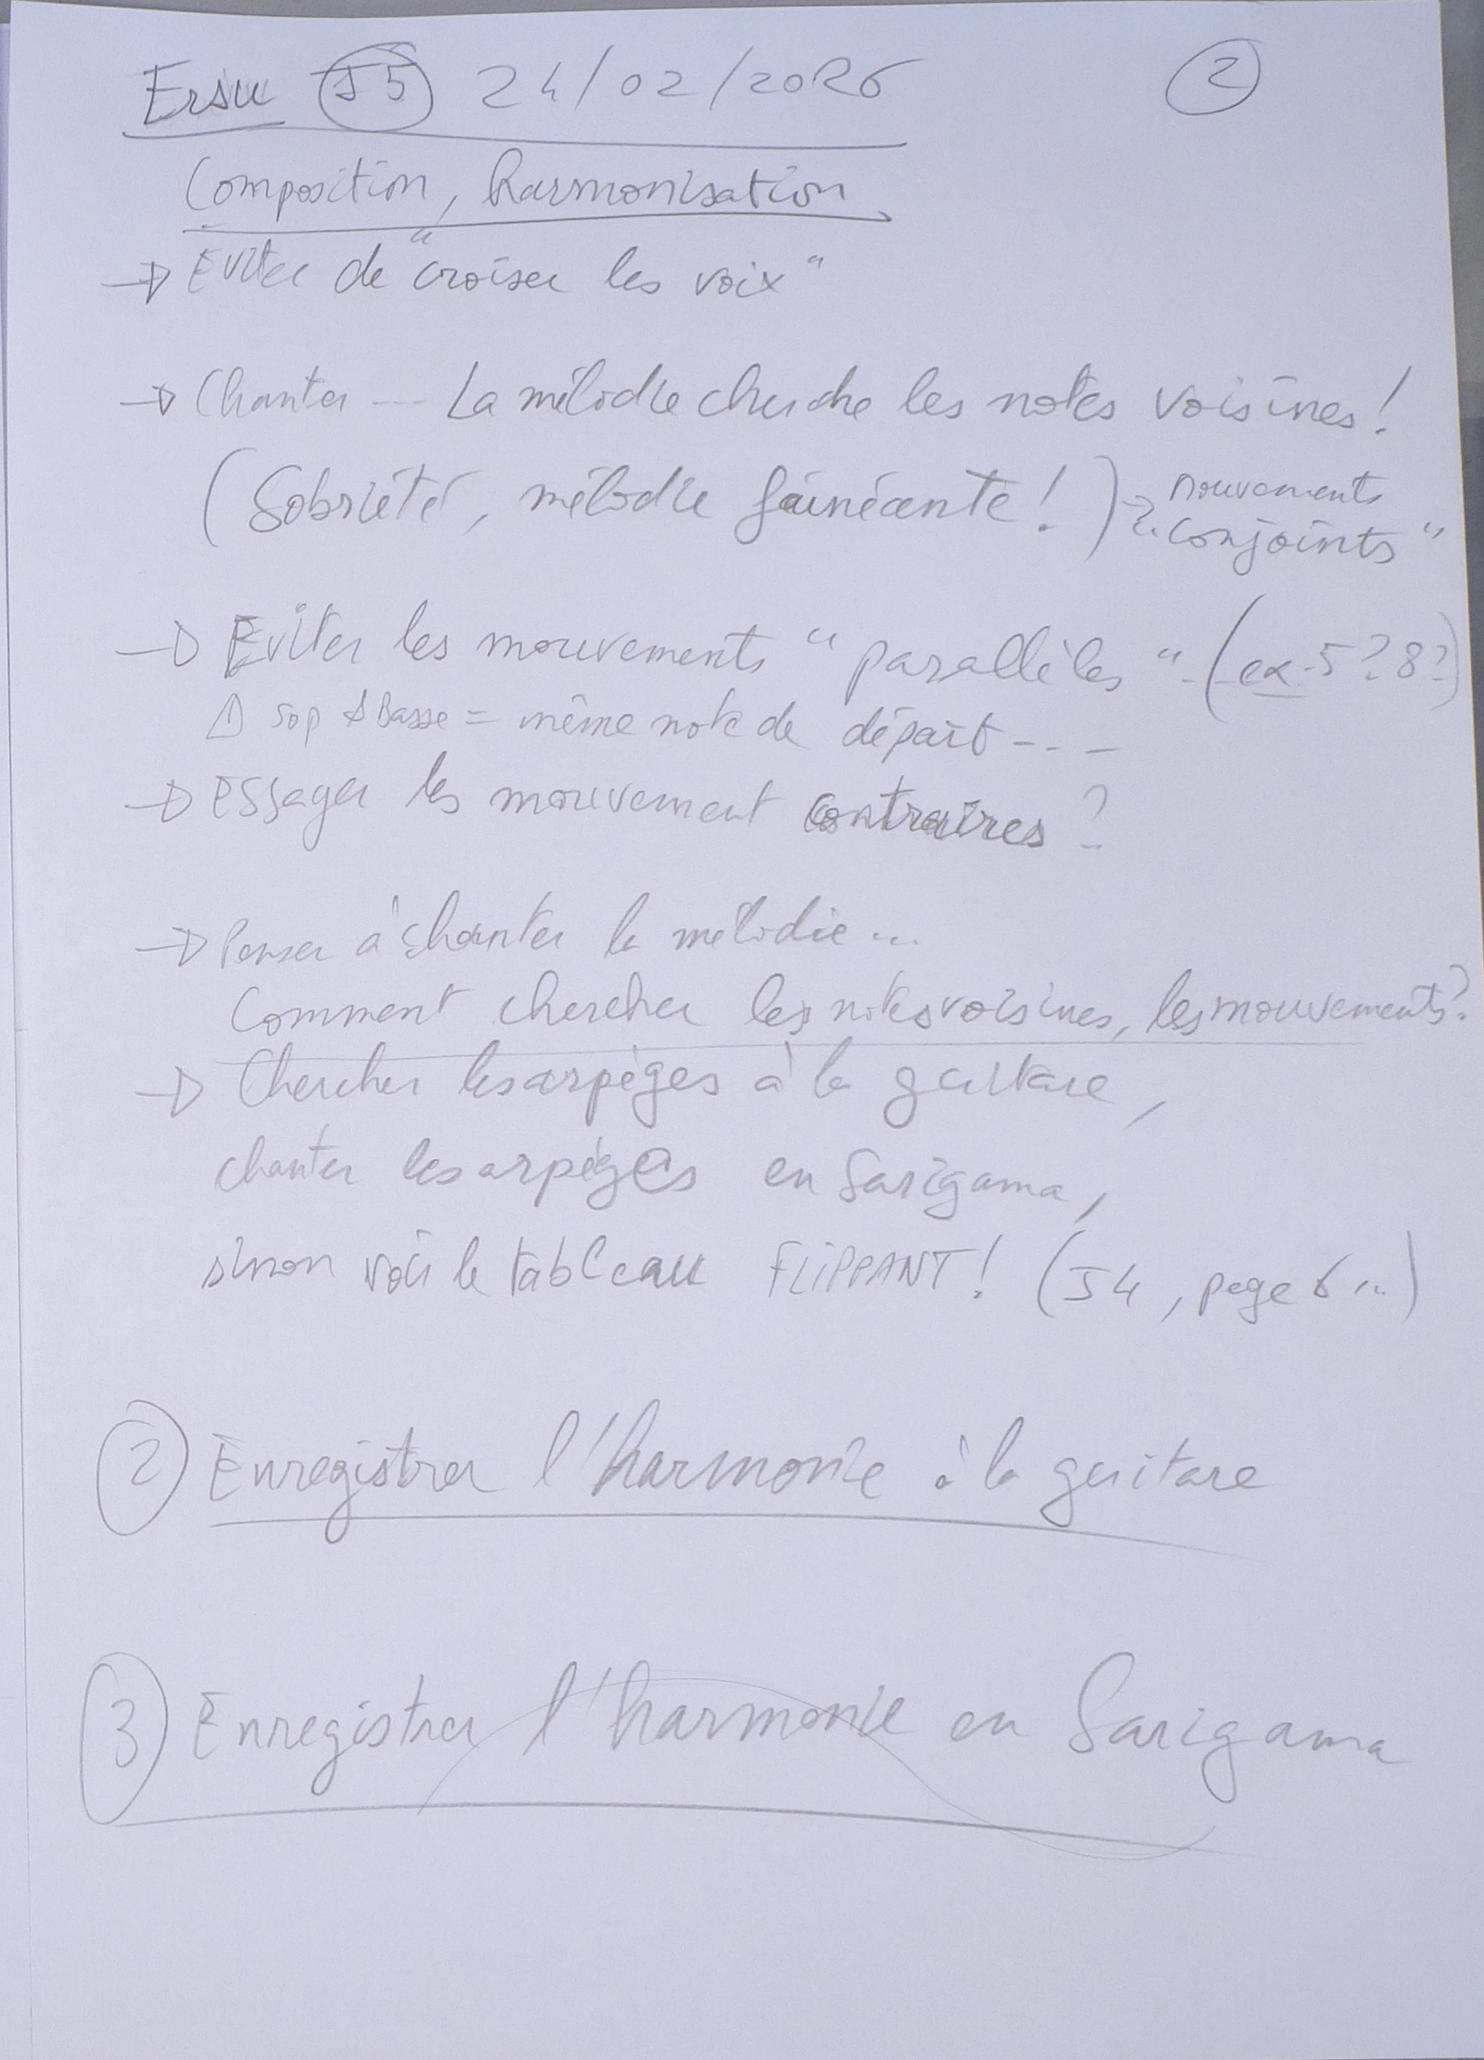 Ersu J5 24/02/2026 2
Composition, harmonisation
→ Eviter de "croiser les voix"
→ Chanter --- La mélodie cherche les notes voisines!
(Sobriété, mélodie fainéante!) → mouvements
"conjoints"
→ Eviter les mouvements "parallèles" - (ex. 5? 8?)
⚠ Sop & Basse = même note de départ ---
→ Essayer les mouvement contraires?
→ Penser à chanter la mélodie ...
Comment chercher les notes voisines, les mouvements?
→ Chercher les arpèges à la guitare,
chanter les arpèges en Sarigama,
sinon voir le tableau FLIPPANT! (J4, page 6 ...)
2 Enregistrer l'harmonie à la guitare
3 Enregistrer l'harmonie en Sarigama